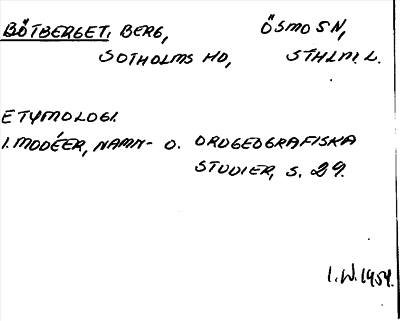 BÖTBERGET, BERG, ÖSMO SN,
SOTHOLMS HD, STHLM. L.
ETYMOLOGI.
I. MODÉER, NAMN- O. ORDGEOGRAFISKA
STUDIER, S. 29.
I.W. 1954.